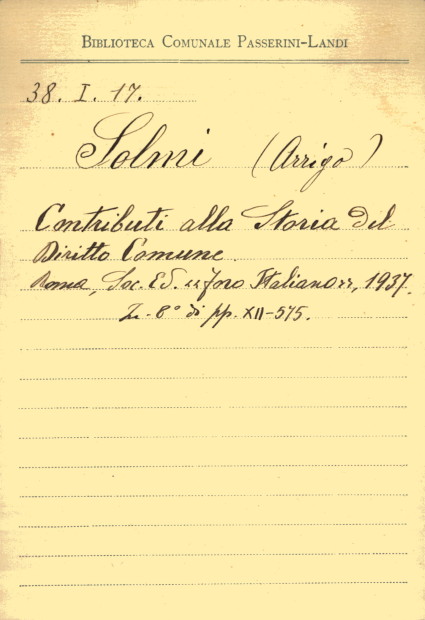 BIBLIOTECA COMUNALE PASSERINI-LANDI
38. I. 17.
Solmi (Arrigo)
Contributi alla Storia del
Diritto Comune.
Roma, Soc. Ed. "Foro Italiano", 1937.
In-8° di pp. XII-575.